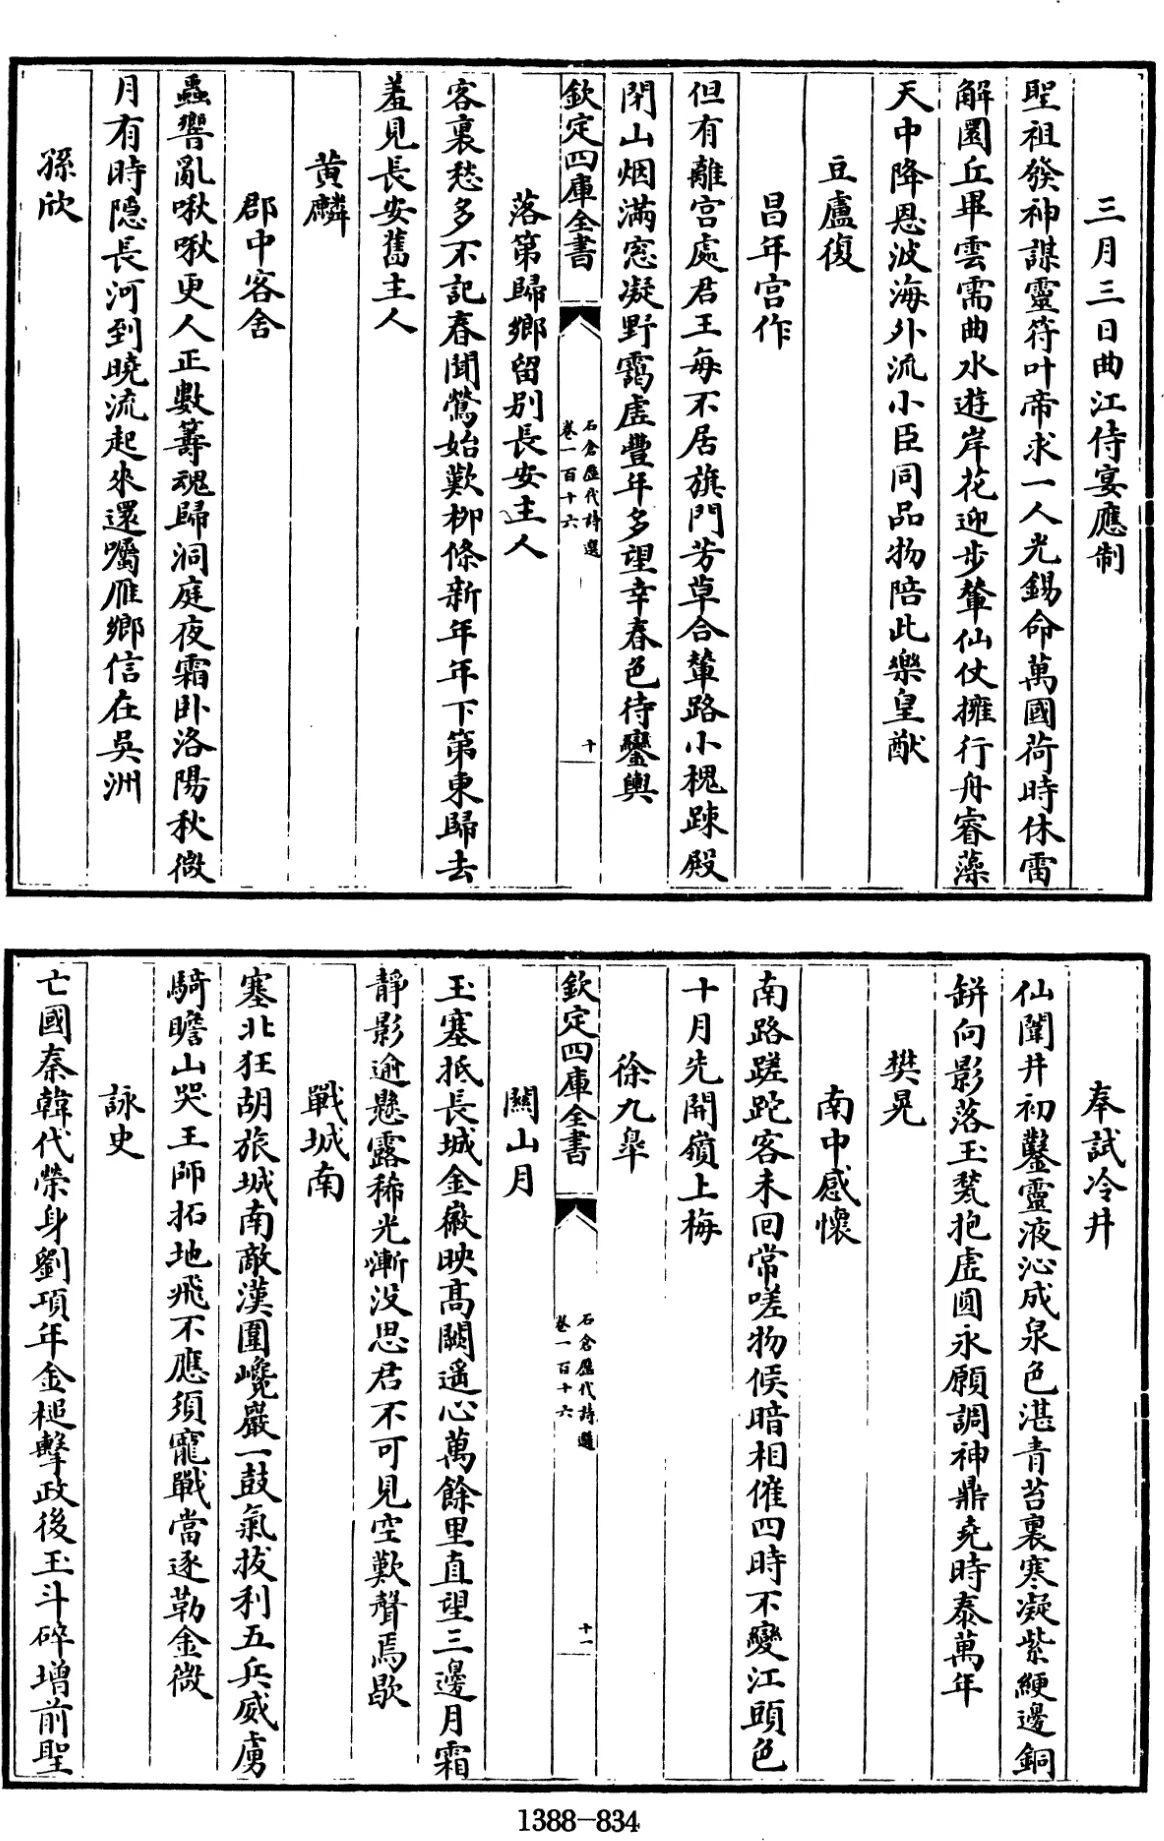 三月三日曲江侍宴應制
聖祖發神謀靈符叶帝求一人光錫命萬國荷時休雷
解圜丘畢雲需曲水遊岸花迎步輦仙仗擁行舟睿藻
天中降恩波海外流小臣同品物陪此樂皇猷
豆盧復
昌年宫作
但有離宫處君王每不居旗門芳草合輦路小槐踈殿
閉山烟滿窓凝野靄虚豐年多望幸春色待鑾輿
欽定四庫全書
石倉歷代詩選
卷一百十六
十
落第歸鄉留别長安主人
客裏愁多不記春聞鶯始歎柳條新年年下第東歸去
羞見長安舊主人
黄麟
郡中客舍
蟲響亂啾啾更人正數籌魂歸洞庭夜霜卧洛陽秋微
月有時隠長河到曉流起來還囑雁鄉信在吳洲
孫欣
奉試冷井
仙闈井初鑿靈液沁成泉色湛青苔裏寒凝紫綆邊銅
缾向影落玉甃抱虚圓永願調神鼎堯時泰萬年
樊晃
南中感懷
南路蹉跎客未回常嗟物候暗相催四時不變江頭色
十月先開嶺上梅
徐九臯
欽定四庫全書
石倉歷代詩選
卷一百十六
十一
關山月
玉塞抵長城金徽映高闕遥心萬餘里直望三邊月霜
靜影逾懸露稀光漸没思君不可見空歎聲焉歇
戰城南
塞北狂胡旅城南敵漢圍巉巖一鼓氣拔利五兵威虜
騎瞻山哭王師拓地飛不應須寵戰當逐勒金微
詠史
亡國秦韓代榮身劉項年金槌擊政後玉斗碎增前聖
1388—834